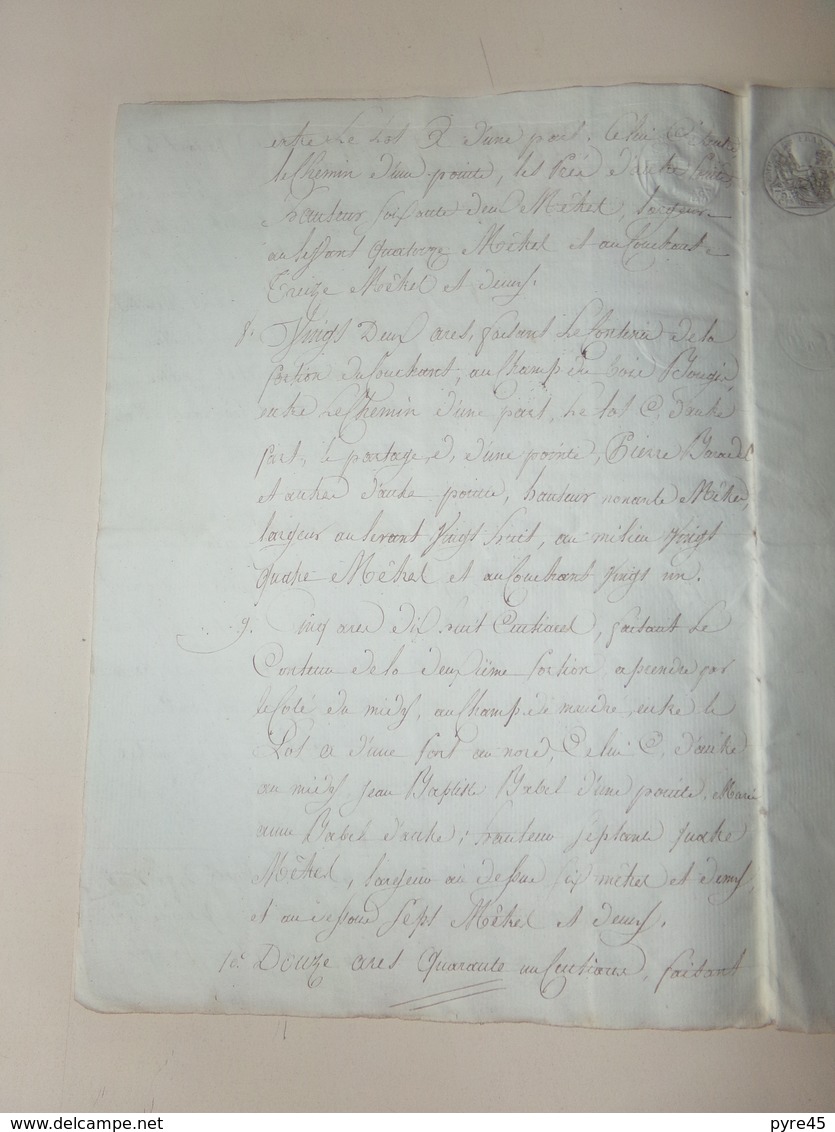 entre Le Lot d'une part, Celui
le Chemin d'une pointe, les d'autre
hauteur soixante deux Mêtres, largeur
au levant quatorze Mêtres et au Couchant
Treize Mêtres et demy.
8. Vingt Deux ares, faisant Le Contenu de la
portion du Couchant, au Champ du
entre Le Chemin d'une part, Le Lot C, d'autre
part, le partage d'une pointe, Pierre
et autres d'autre pointe, hauteur nonante Mêtres,
largeur au levant Vingt huit, au milieu Vingt
quatre Mêtres et au Couchant Vingt un.
9. Cinq ares dix huit Centiares, faisant Le
Contenu de la deuxième portion, a prendre par
le Coté du midy, au Champ de entre le
Lot a d'une part au nord, Celui C, d'autre
au midy Jean Baptiste Babel d'une pointe, Marie
anne Babel d'autre; hauteur septante quatre
Mêtres, largeur au dessus six mêtres et demy,
et au dessous sept Mêtres et demy.
10. Douze ares Quarante un Centiares, faisant
www.delcampe.net
pyre45